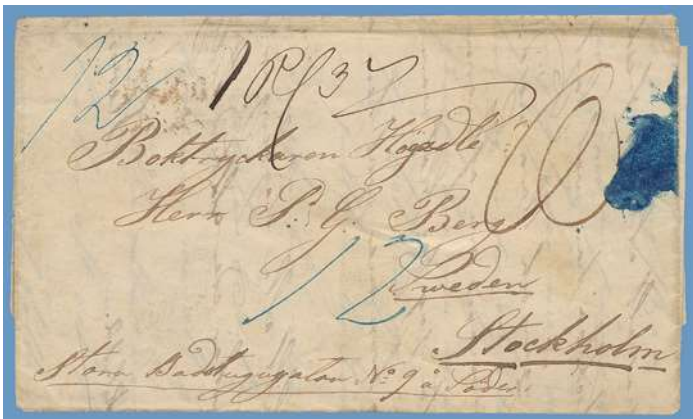 12
Boktryckaren Högädle
Herr P. G. Berg
12
Sweden
Stockholm
Stora Badstugugatan No 9 à Söder